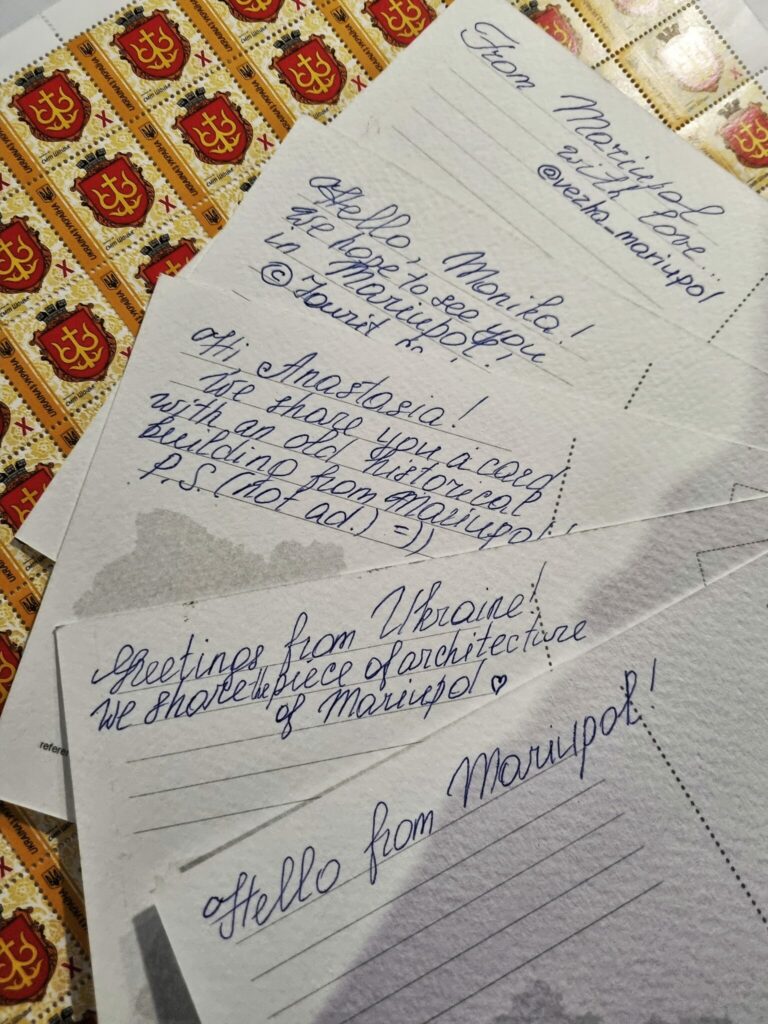 From Mariupol
with love...
@vezha_mariupol
Hello, Monika!
We hope to see you
in Mariupol!
Hi Anastasia!
We share you a card
with an old historical
building from Mariupol!
P.S. (not ad.) =))
Greetings from Ukraine!
We share the piece of architecture
of Mariupol ♡
Hello from Mariupol!